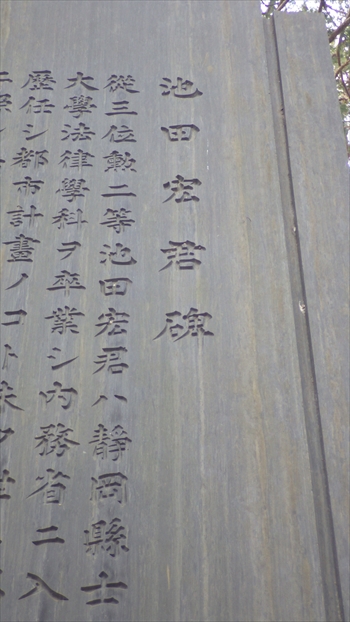 池田宏君碑
從三位勲二等池田宏君ハ靜岡縣士
大學法律學科ヲ卒業シ内務省ニ入
歷任シ都市計畫ノコト